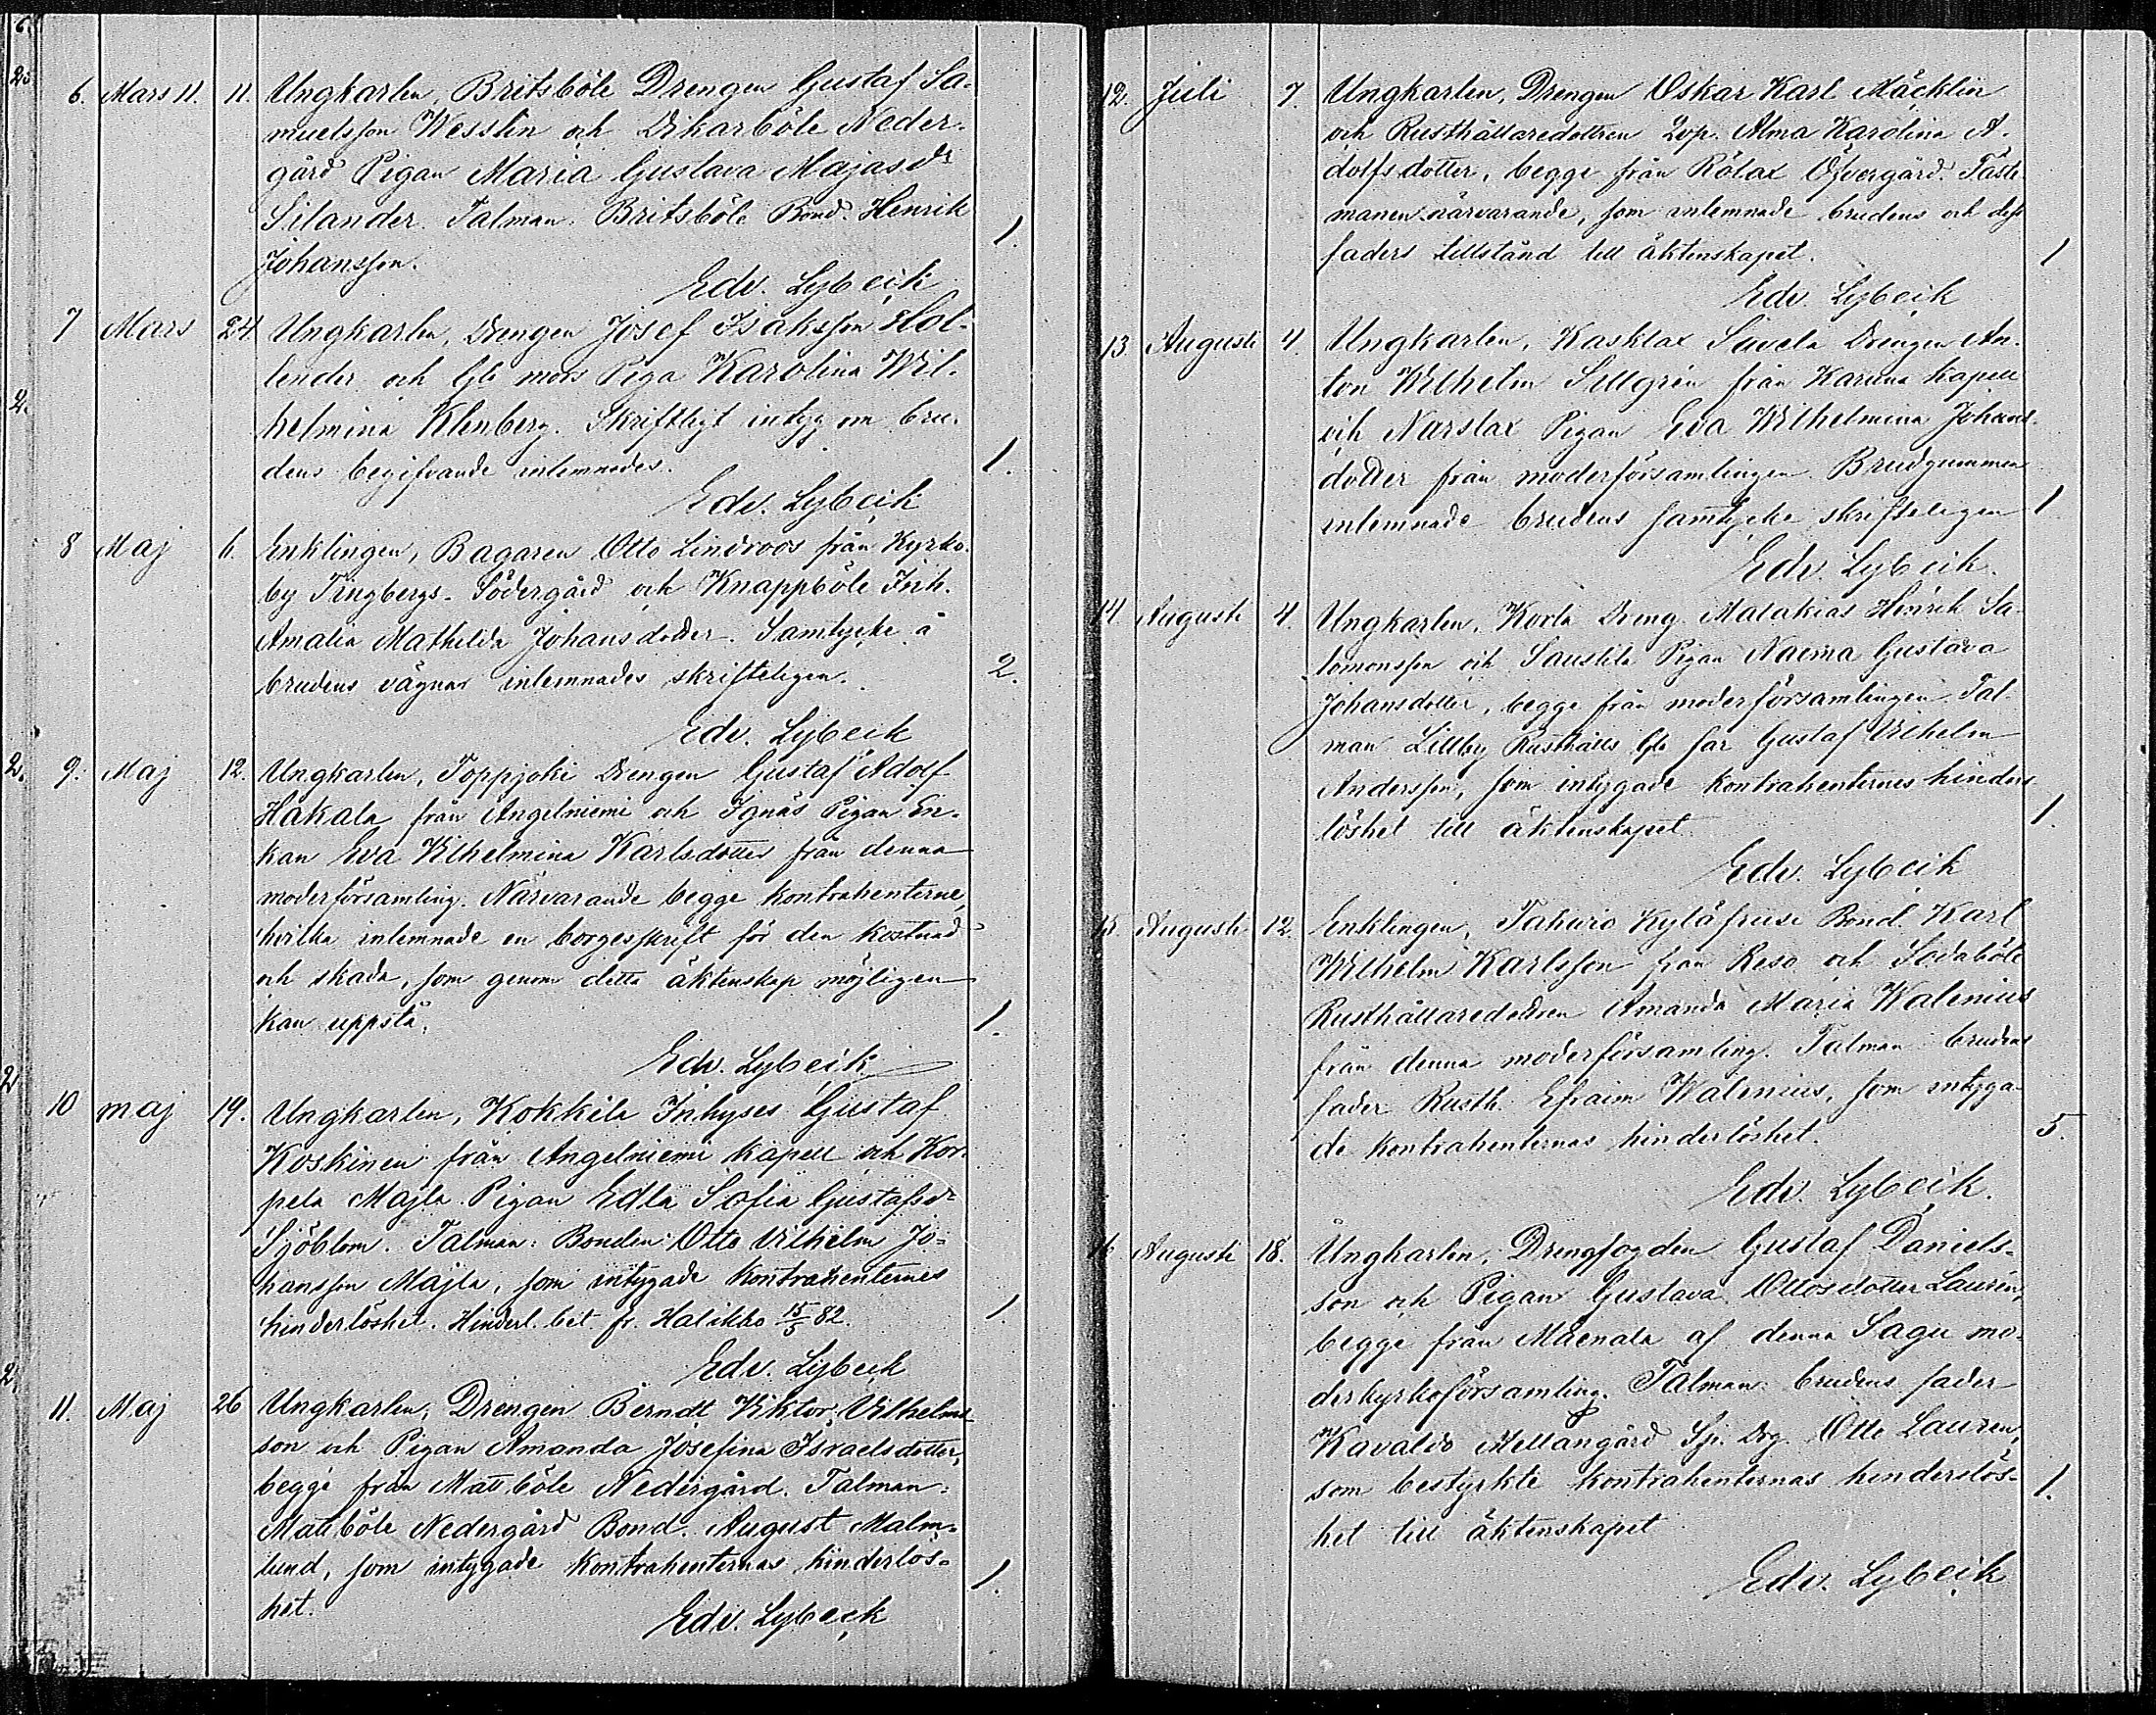 6. Mars 11. 11. Ungkarlen, Britsböle Drengen Gustaf Sa-
muelsson Wesslin och Dikarböle Neder-
gård Pigan Maria Gustava Majasdr
Silander. Talman: Britsböle Bond. Henrik
Johansson. 1.
Edv. Lybeck
7 Mars 24 Ungkarlen, Drengen Josef Isaksson Hol-
lender och Gb mors Piga Karolina Wil-
helmina Klenberg. Skriftligt intyg om bru-
dens begifvande inlemnades. 1.
Edv. Lybeck
8 Maj 6. Enklingen, Bagaren Otto Lindroos från Kyrko-
by Tingbergs-Södergård och Knappböle Inh.
Amalia Mathilda Johansdotter. Samtycke å
brudens vägnar inlemnades skrifteligen. 2.
Edv. Lybeck
9. Maj 12. Ungkarlen, Toppjoki Drengen Gustaf Adolf
Hakala från Angelniemi och Ignäs Pigan En-
kan Eva Vilhelmina Karlsdotter från denna
moderförsamling. Närvarande begge kontrahenterne,
hvilka inlemnade en borgesskrift för den kostnad
och skada, som genom detta äktenskap möjligen
kan uppstå. 1.
Edv. Lybeck
10 maj 19. Ungkarlen, Kokkila Inhyses Gustaf
Koskinen från Angelniemi kapell och Kor-
pela Majla Pigan Edla Sofia Gustafsdr
Sjöblom. Talman: Bonden Otto Vilhelm Jo-
hansson Majla, som intygade kontrahenternes
hinderlöshet. Hinderl. bet. fr. Halikko 15/5 82. 1.
Edv. Lybeck
11. Maj 26 Ungkarlen, Drengen Berndt Viktor Vilhelms-
son och Pigan Amanda Josefina Israelsdotter,
begge från Mattböle Nedergård. Talman:
Mattböle Nedergård Bond. August Malm-
lund, som intygade kontrahenternas hinderlös-
het. 1.
Edv. Lybeck
12. Juli 7. Ungkarlen, Drengen Oskar Karl Mäcklin
och Rusthållaredottren Alma Karolina A-
dolfsdotter, begge från Rölax Öfvergård. Fäste-
manen närvarande, som inlemnade brudens och dess
faders tillstånd till äktenskapet. 1
Edv. Lybeck
13. Augusti 4. Ungkarlen, Kasklax Suvela Drengen An-
ton Wilhelm Sillgrén från Karuna kapell
och Narslax Pigan Eva Wilhelmina Johans-
dotter från moderförsamlingen. Brudgummen
inlemnade brudens samtycke skrifteligen 1
Edv. Lybeck.
14. Augusti 4. Ungkarlen, Korla Dreng Malakias Henrik Sa-
lomonsson och Saustila Pigan Naema Gustava
Johansdotter, begge från moderförsamlingen. Tal-
man Lillby Rusthålls Gb far Gustaf Vilhelm
Andersson, som intygade kontrahenternes hinders-
löshet till äktenskapet 1.
Edv. Lybeck
15. Augusti 12. Enklingen, Bond. Karl
Wilhelm Karlsson från Reso och Sodaböle
Rusthållaredottren Amanda Maria Walenius
från denna moderförsamling. Talman brudens
fader Rusth. Efraim Walenius, som intyga-
de kontrahenternas hinderlöshet. 5.
Edv. Lybeck.
16 Augusti 18. Ungkarlen, Drengfogden Gustaf Daniels-
son och Pigan Gustava Ottosdotter Laurén,
begge från Mäenala af denna Sagu mo-
derkyrkoförsamling. Talman: brudens fader
Kavaldo Mellangård Sp. Drg. Otto Lauren,
som bestyrkte kontrahenternas hinderslös-
het till äktenskapet 1.
Edv. Lybeck